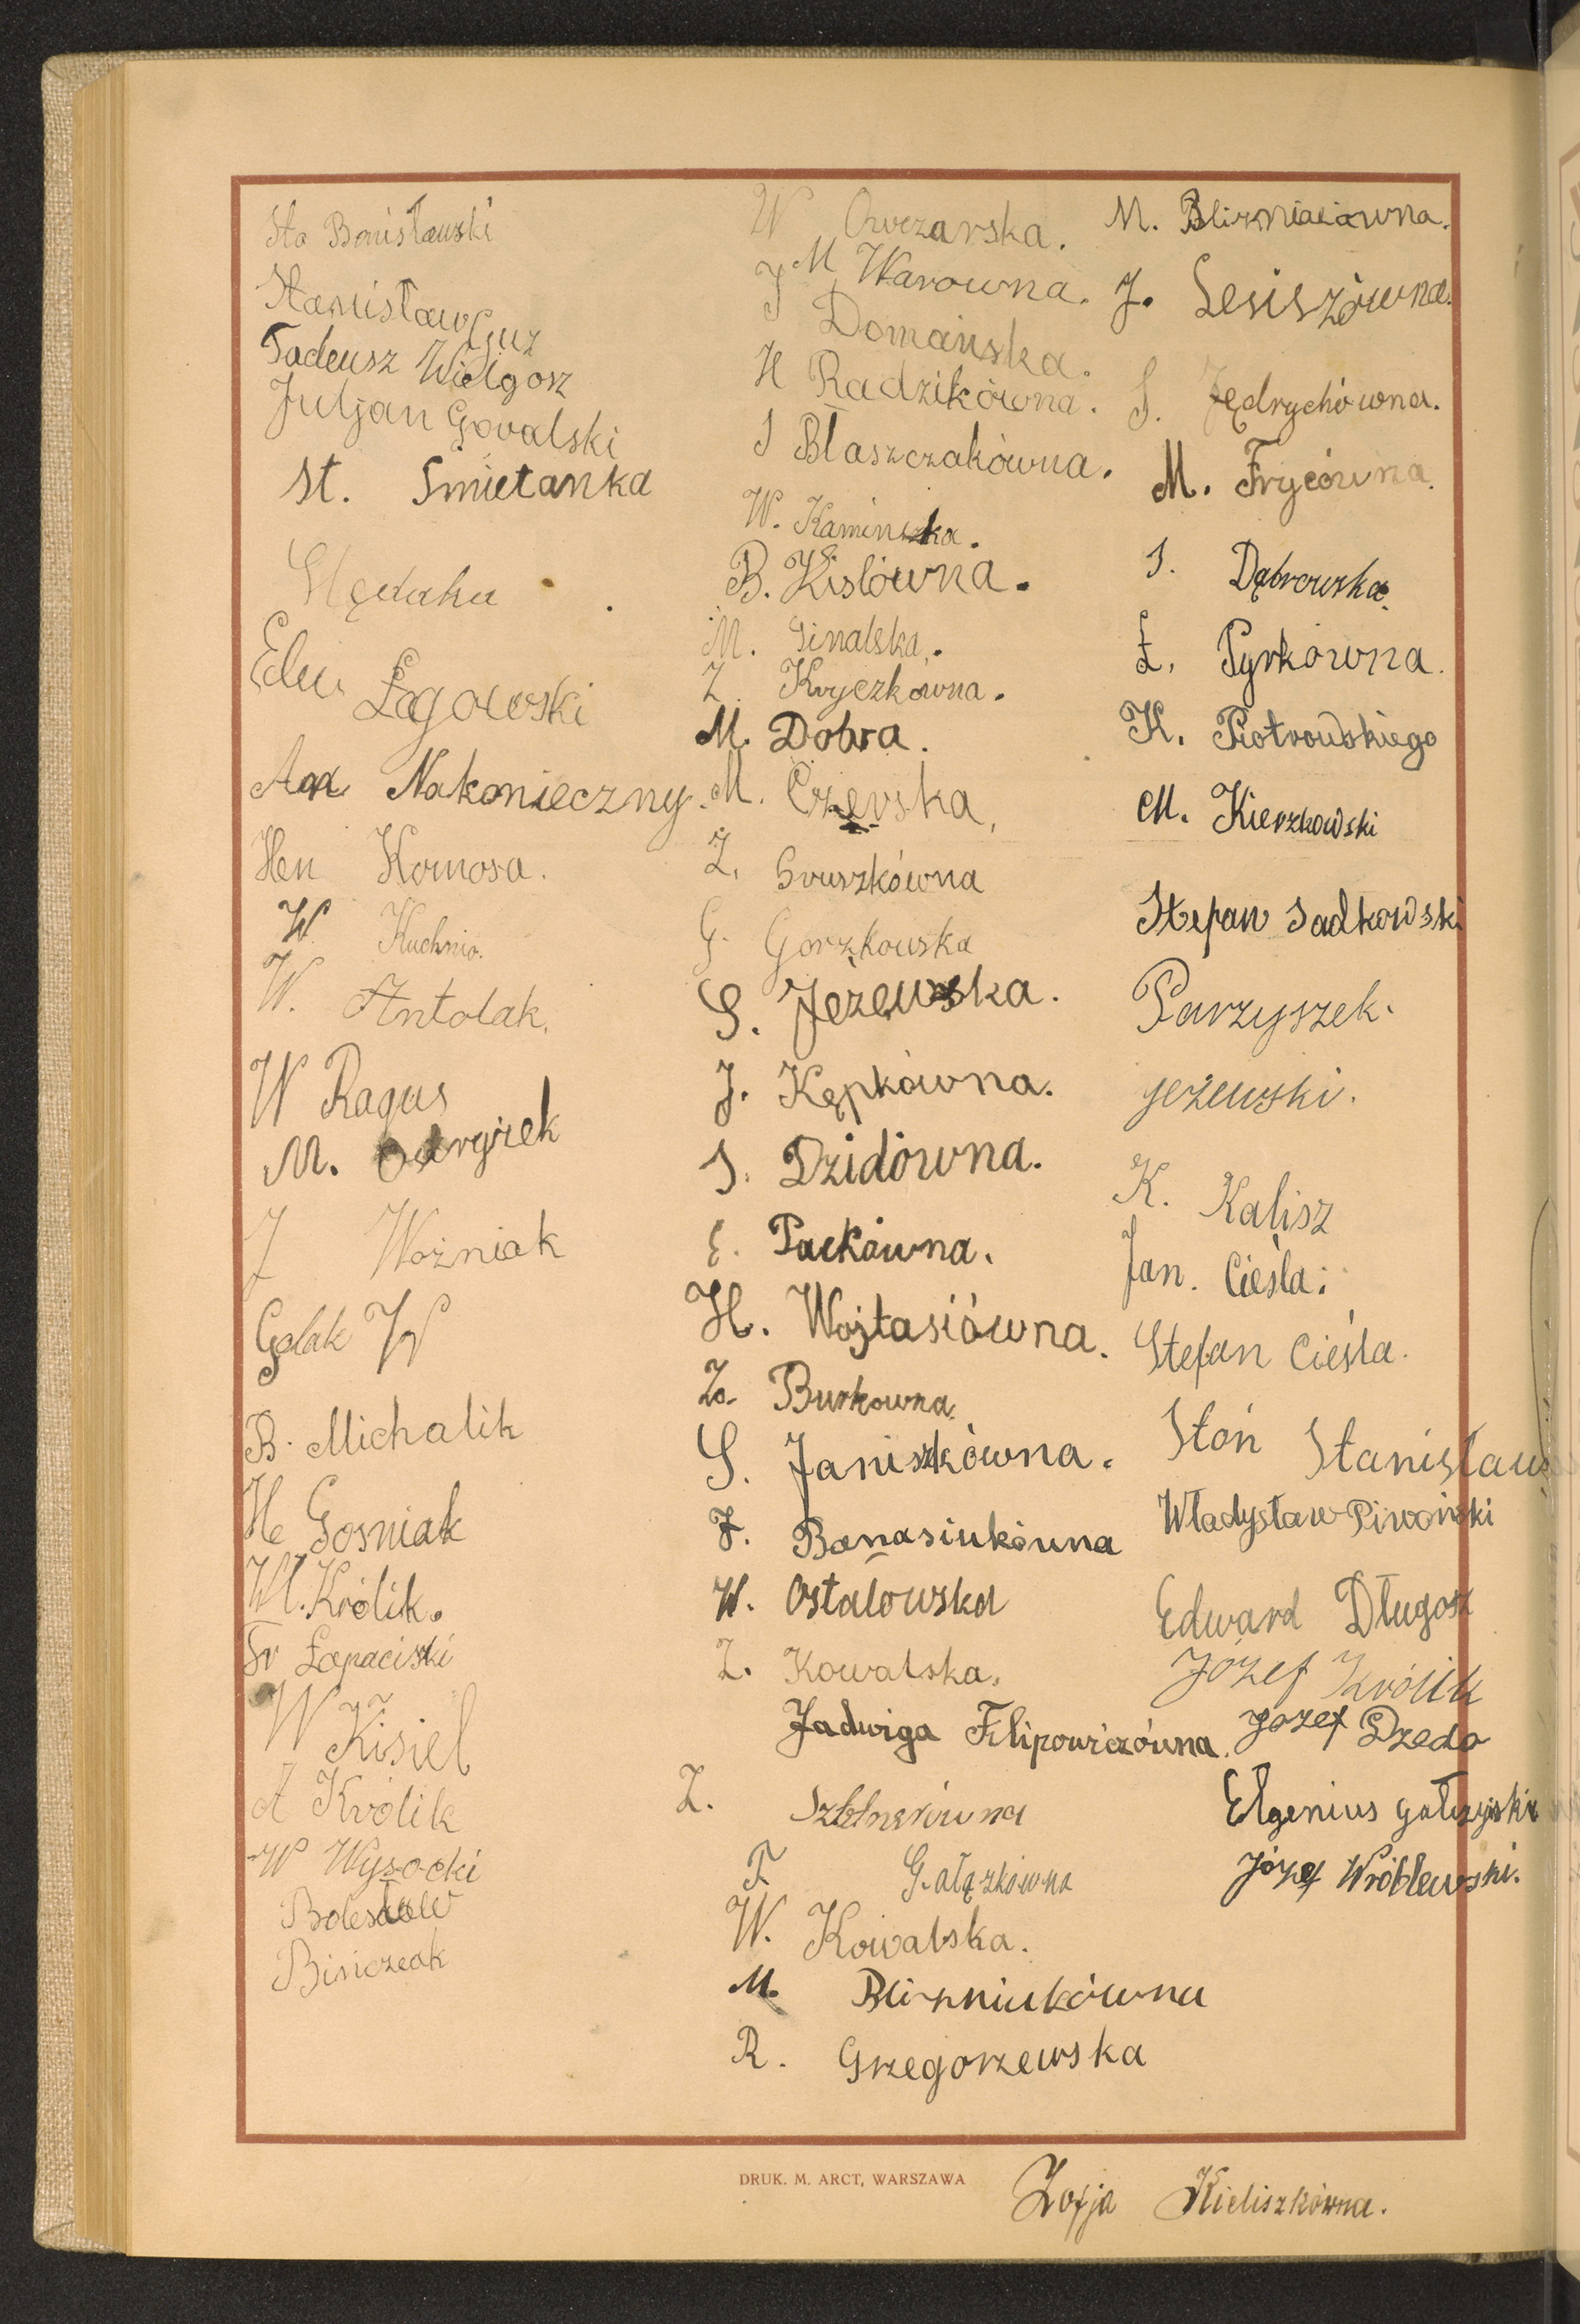 Sta Bonisławski
Stanisław Guz
Tadeusz Wielgosz
Juljan Govalski
St. Smietanka
Edw Łagowski
Nakonieczny
Hen Komosa.
W Kuchnio.
W. Antolak.
W Ragus
M.
J Woźniak
Golak W
B. Michalik
He Gosniak
Wł. Królik.
Fr Łopaciski
W Kisiel
A Królik
W Wysocki
Bolesław
Bisiczeak
W Owczarska.
M Warowna.
J Domańska.
H Radzikówna.
S Błaszczakówna.
W. Kaminska.
B. Kislówna.
M. Sinalska.
Z. Kryczkówna.
M. Dobra.
M. Czerska,
Z. Gruszkówna
G. Gorzkowska
S. Jeżewska.
J. Kępkówna.
S. Dzidówna.
E. Paćkówna.
H. Wojtasiówna.
Z. Burkowna.
S. Janiszkówna.
F. Banasiukówna
W. Ostalowska
Z. Kowalska.
Jadwiga Filipowiczówna.
Z.
F Gałązkówna
W. Kowalska.
M. Blizniukówna
R. Grzegorzewska
M.
J. Lesiszówna.
S. Jędrychówna.
M. Frycówna.
S. Dąbrowska.
Ł. Pyrkówna.
K. Piotrowskiego
M. Kierzkowski
Stefan Sadkowski
Parzyszek.
Jeżewski.
K. Kalisz
Jan. Cieśla.
Stefan Cieśla.
Stoń Stanisław
Władysław Piwoński
Edward Długosz
Józef Królik
Józef Dzedo
Elgenius
Józef Wróblewski.
DRUK. M. ARCT, WARSZAWA
Zofja Kieliszkówna.